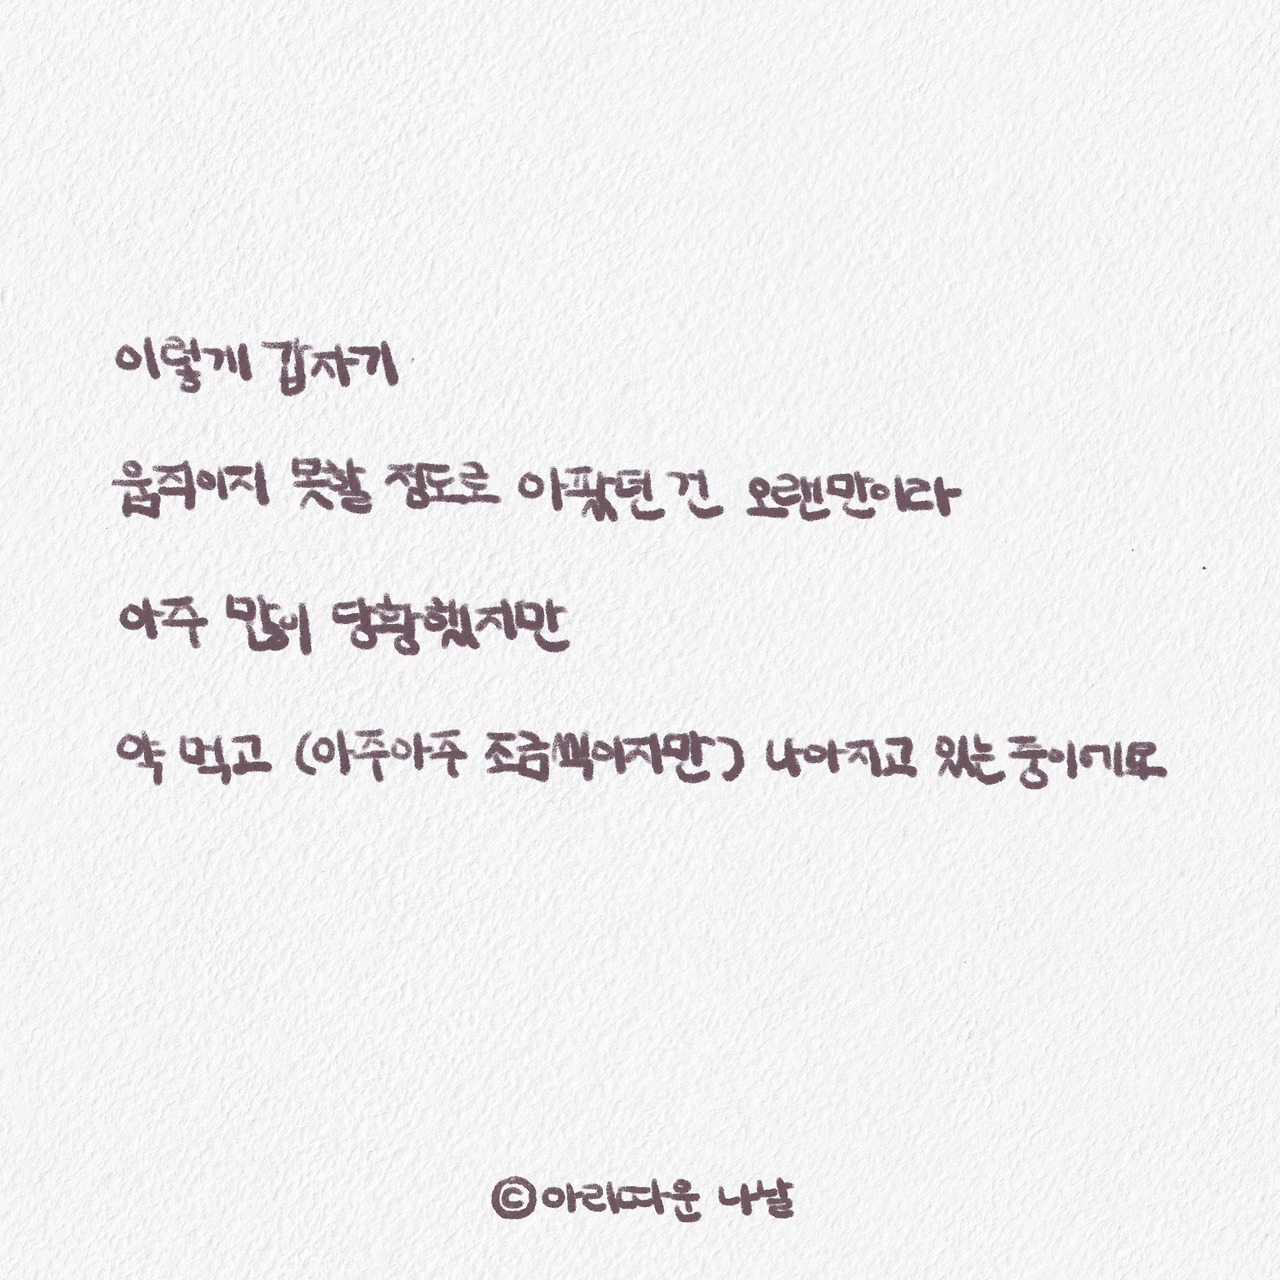 이렇게 갑자기
움직이지 못할 정도로 아팠던 건 오랜만이라
아주 많이 당황했지만
약 먹고 (아주아주 조금씩이지만) 나아지고 있는 중이기에
©아리따운 나날